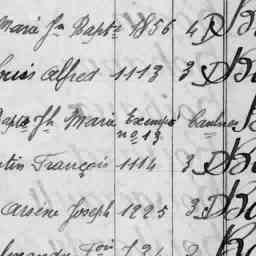 Marie Jn Bapte 1856 4 D B
ouis Alfred 1113 3 D B
Bapte Jh Marie Exempté
no 13
tin François 1114 3 D B
Arsène Joseph 1225 3 D B